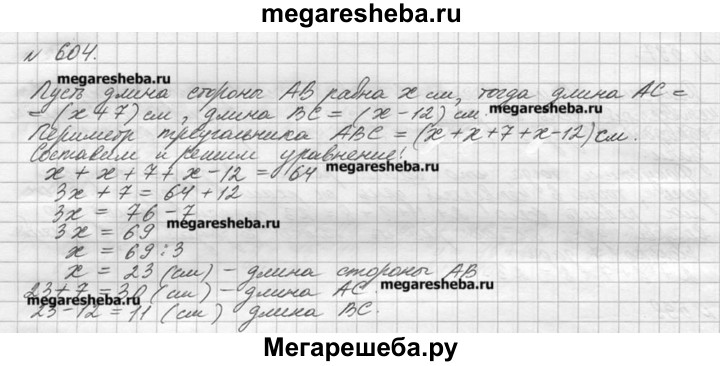 megaresheba.ru
№ 604.
megaresheba.ru
Пусть длина стороны AB равна x см, тогда длина AC =
= (x + 7) см, длина BC = (x - 12) см.
megaresheba.ru
Периметр треугольника ABC = (x + x + 7 + x - 12) см.
Составим и решим уравнение:
x + x + 7 + x - 12 = 64
megaresheba.ru
3x + 7 = 64 + 12
3x = 76 - 7
megaresheba.ru
3x = 69
x = 69 : 3
x = 23 (см) - длина стороны AB
23 + 7 = 30 (см) - длина AC
megaresheba.ru
megaresheba.ru
23 - 12 = 11 (см) длина BC.
Мегарешеба.ру